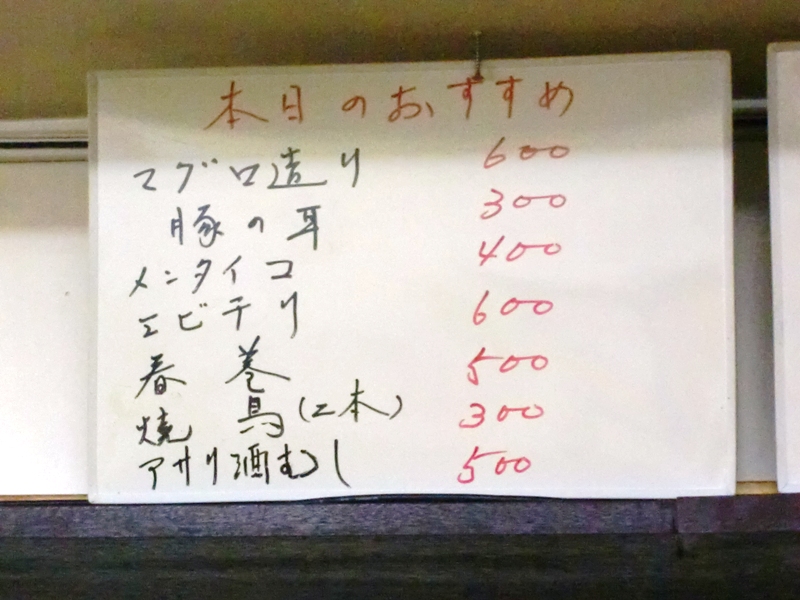 本日のおすすめ
マグロ造り 600
豚の耳 300
メンタイコ 400
エビチリ 600
春巻 500
焼鳥(2本) 300
アサリ酒むし 500